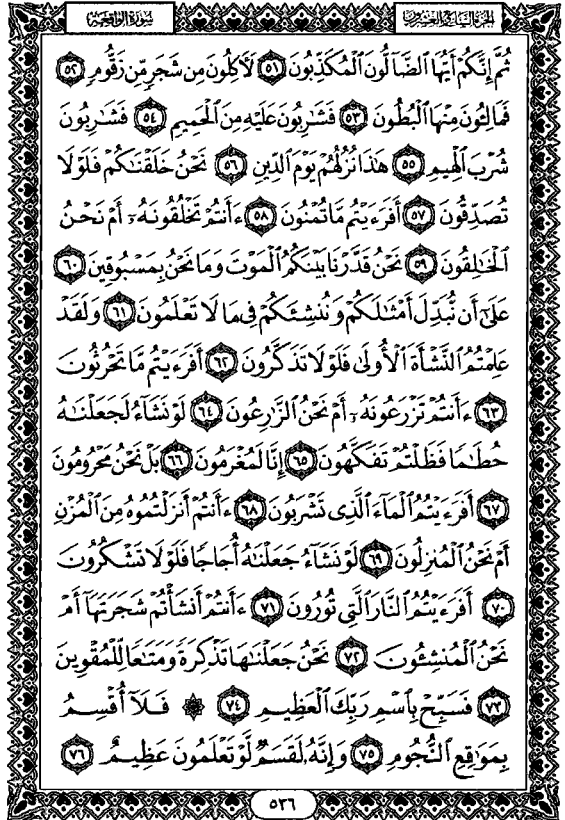 سُورَةُ الوَاقِعَةِ
الجزء السابع والعشرون
ثُمَّ إِنَّكُمْ أَيُّهَا ٱلضَّآلُّونَ ٱلْمُكَذِّبُونَ ٥١ لَأٓكِلُونَ مِن شَجَرٍ مِّن زَقُّومٍ ٥٢
فَمَالِـُٔونَ مِنْهَا ٱلْبُطُونَ ٥٣ فَشَٰرِبُونَ عَلَيْهِ مِنَ ٱلْحَمِيمِ ٥٤ فَشَٰرِبُونَ
شُرْبَ ٱلْهِيمِ ٥٥ هَٰذَا نُزُلُهُمْ يَوْمَ ٱلدِّينِ ٥٦ نَحْنُ خَلَقْنَٰكُمْ فَلَوْلَا
تُصَدِّقُونَ ٥٧ أَفَرَءَيْتُم مَّا تُمْنُونَ ٥٨ ءَأَنتُمْ تَخْلُقُونَهُۥٓ أَمْ نَحْنُ
ٱلْخَٰلِقُونَ ٥٩ نَحْنُ قَدَّرْنَا بَيْنَكُمُ ٱلْمَوْتَ وَمَا نَحْنُ بِمَسْبُوقِينَ ٦٠
عَلَىٰٓ أَن نُّبَدِّلَ أَمْثَٰلَكُمْ وَنُنشِئَكُمْ فِى مَا لَا تَعْلَمُونَ ٦١ وَلَقَدْ
عَلِمْتُمُ ٱلنَّشْأَةَ ٱلْأُولَىٰ فَلَوْلَا تَذَكَّرُونَ ٦٢ أَفَرَءَيْتُم مَّا تَحْرُثُونَ
٦٣ ءَأَنتُمْ تَزْرَعُونَهُۥٓ أَمْ نَحْنُ ٱلزَّٰرِعُونَ ٦٤ لَوْ نَشَآءُ لَجَعَلْنَٰهُ
حُطَٰمًا فَظَلْتُمْ تَفَكَّهُونَ ٦٥ إِنَّا لَمُغْرَمُونَ ٦٦ بَلْ نَحْنُ مَحْرُومُونَ
٦٧ أَفَرَءَيْتُمُ ٱلْمَآءَ ٱلَّذِى تَشْرَبُونَ ٦٨ ءَأَنتُمْ أَنزَلْتُمُوهُ مِنَ ٱلْمُزْنِ
أَمْ نَحْنُ ٱلْمُنزِلُونَ ٦٩ لَوْ نَشَآءُ جَعَلْنَٰهُ أُجَاجًا فَلَوْلَا تَشْكُرُونَ
٧٠ أَفَرَءَيْتُمُ ٱلنَّارَ ٱلَّتِى تُورُونَ ٧١ ءَأَنتُمْ أَنشَأْتُمْ شَجَرَتَهَآ أَمْ
نَحْنُ ٱلْمُنشِـُٔونَ ٧٢ نَحْنُ جَعَلْنَٰهَا تَذْكِرَةً وَمَتَٰعًا لِّلْمُقْوِينَ
٧٣ فَسَبِّحْ بِٱسْمِ رَبِّكَ ٱلْعَظِيمِ ٧٤ ۞ فَلَآ أُقْسِمُ
بِمَوَٰقِعِ ٱلنُّجُومِ ٧٥ وَإِنَّهُۥ لَقَسَمٌ لَّوْ تَعْلَمُونَ عَظِيمٌ ٧٦
٥٣٦